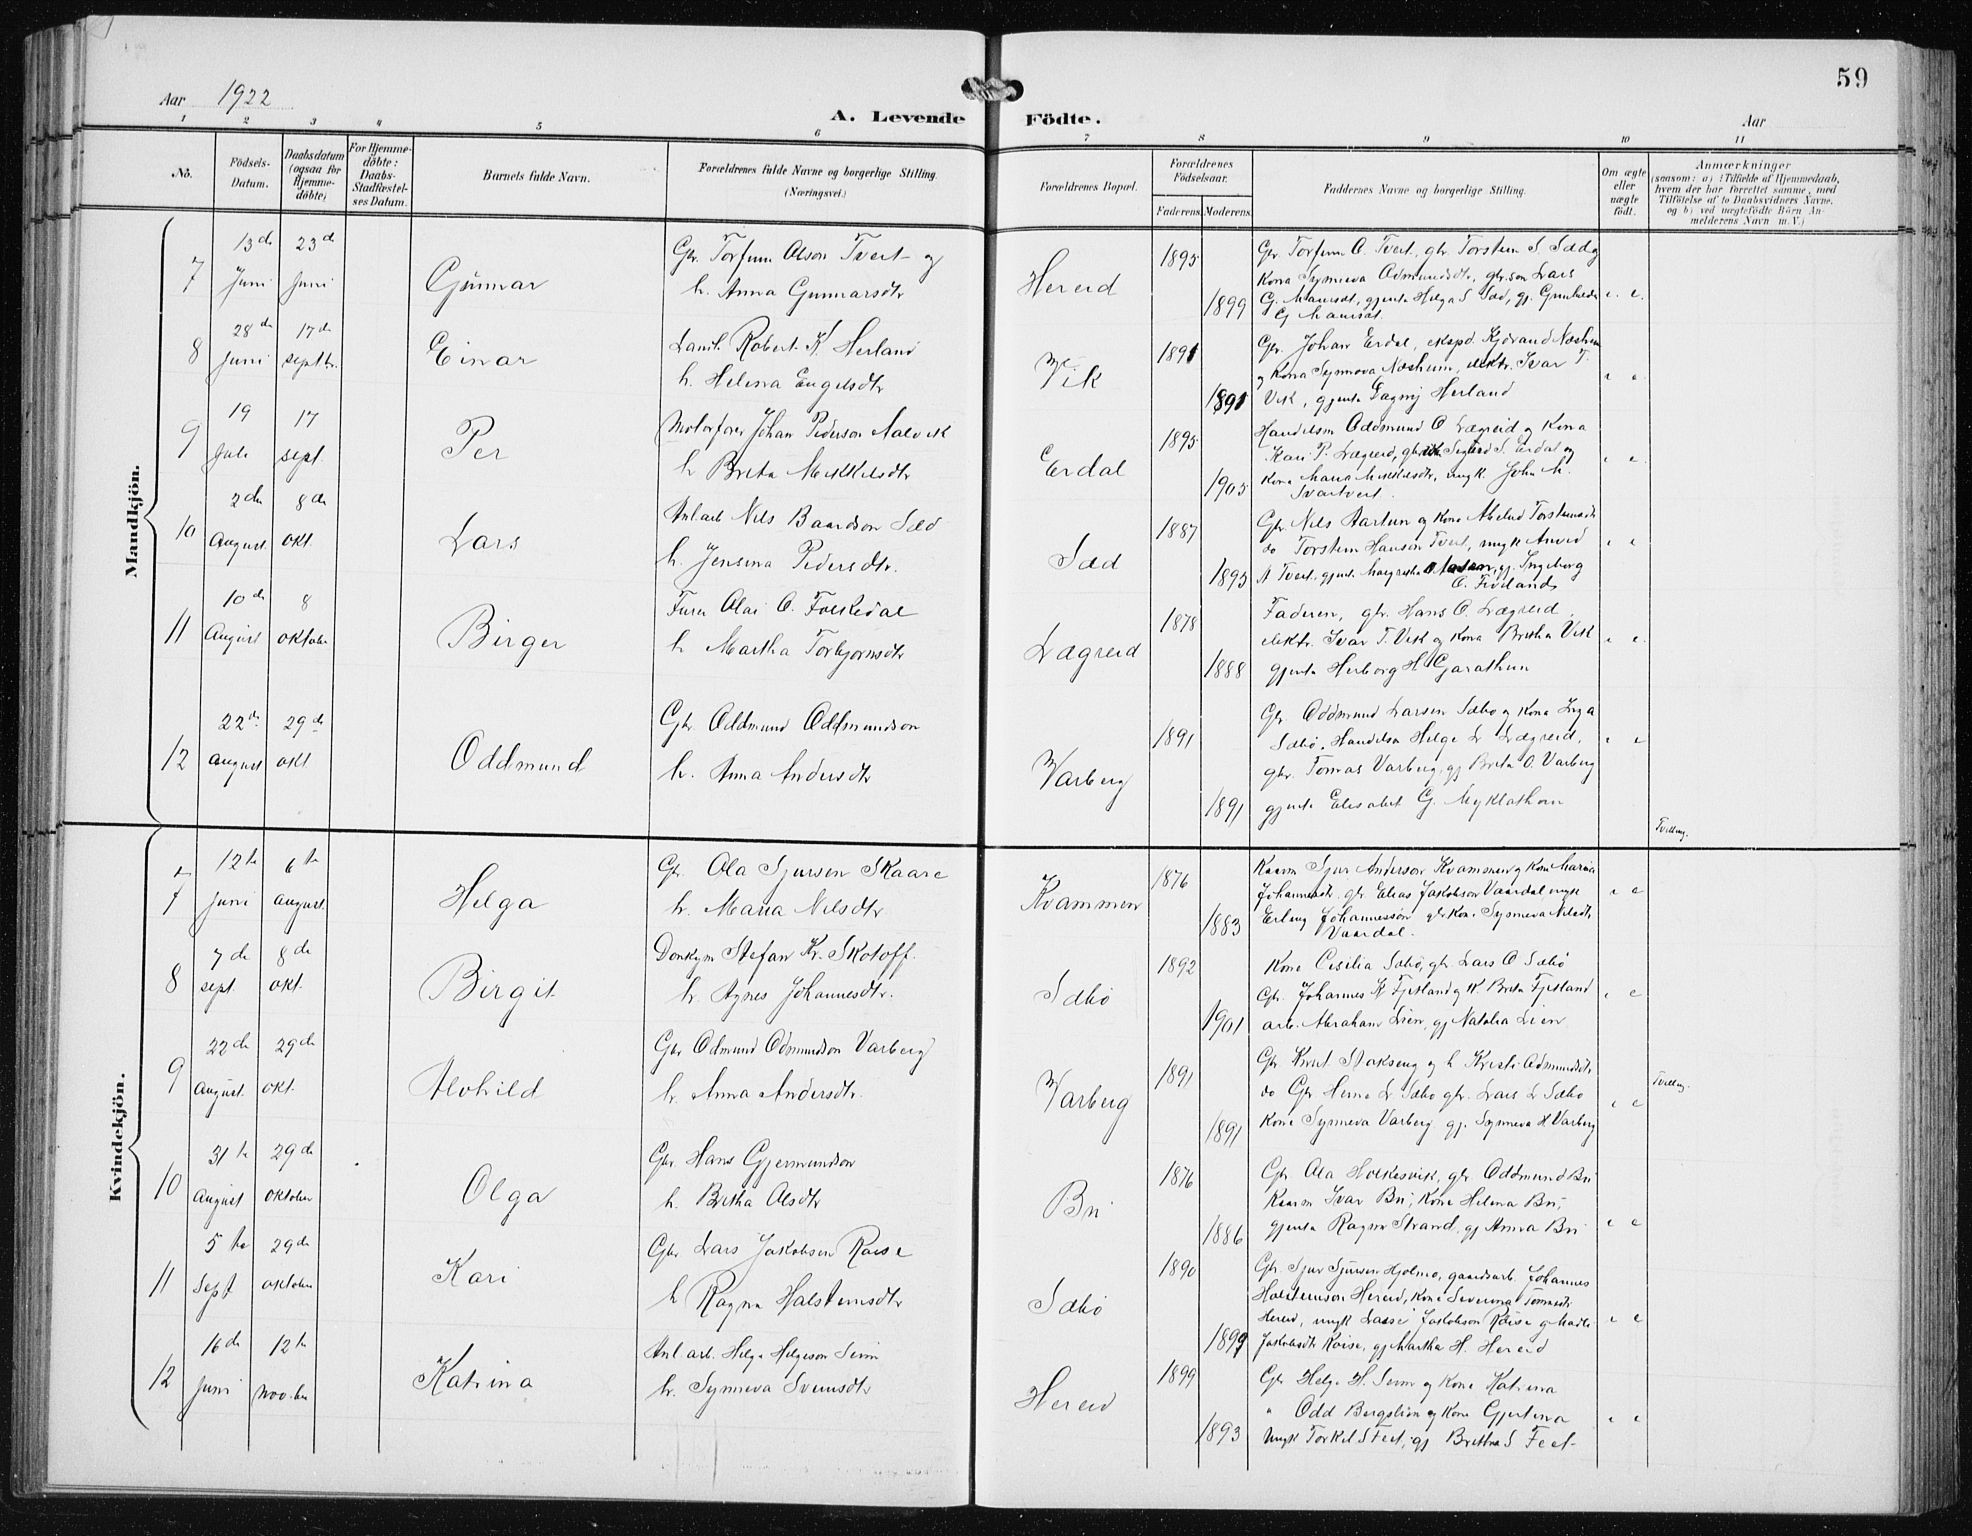 59
Aar 1922
A. Levende Födte.
Aar
1 2 3 4 5 6 7 8 9 10 11
No.
Födsels-Datum.
Daabsdatum (ogsaa for Hjemme-döbte)
For Hjemme-döbte: Daabs-Stadfæstel-ses Datum.
Barnets fulde Navn.
Forældrenes fulde Navne og borgerlige Stilling. (Næringsvei.)
Forældrenes Bopæl.
Forældrenes Födselsaar.
Faderens. Moderens.
Faddernes Navne og borgerlige Stilling.
Om ægte eller uægte födt.
Anmærkninger
(saasom: a) i Tilfælde af Hjemmedaab, hvem der har forrettet samme, med Tilföielse af to Daabsvidners Navne, og b) ved uægtefödte Börn An-melderens Navn m. V.)
Mandkjön.
7
13de Juni
23de Juni
Gunnar
Gbr. Torfinn Olson Tveit og
h. Anna Gunnarsdtr
Hereid
1895
1899
Gbr Torfinn O. Tveit, gbr. Torstein S. Sæd og
Kona Synneva Odmundsdtr, gbr.son Lars
G. Maursæt, gjenta Helga S Sæd, gj. Gunhilda
G Maursæt.
8
28de Juni
17de septbr.
Einar
Robert K. Herland
h. Helena Engelsdtr
Vik
1891
1891
Gbr. Johan Erdal, eksped. Kjörand Næsheim
og Kona Synnova Næsheim, elektr. Ivar T.
Vik, gjenta Dagny Herland
9
19 Juli
17 sept.
Per
Motorförer Johan Pederson Aalvik
h Breta Mikkelsdtr
Erdal
1895
1905
Handelsm Oddmund O Lægreid og Kona
Kari P. Lægreid, Sigurd S. Erdal og
Kona Maria Mikkelsdtr, ungk. John M.
Svartveit.
10
2de August.
8de Okt.
Lars
Anl.arb Nils Baardson Sæd
h. Jensina Pedersdtr.
Sæd
1887
1895
Gbr. Nils Aartun og Kone Torsteinsdtr
do Torstein Hanson Tveit, ungk Anved
A Tveit, gjenta Margretha gj. Ingeborg
O. Fivelands
11
10de August
8 Oktober
Birger
Furu Olai O. Folkedal
h Martha Torbjornsdtr
Lægreid
1878
1888
Faderen, gbr. Hans O. Lægreid,
elektr. Ivar T. Vik og Kona Bretha Vik
gjenta Herborg H Garathun
12
22de August
29de okt
Oddmund
Gbr. Oddmund Oddmundson
h. Anna Andersdtr
Varberg
1891
1891
Gbr. Oddmund Larsen Sæbö og Kona Inga
Sæbö, Handelsm Helge L Lægreid,
gbr. Tomas Varberg, gj Breta O. Varberg
gjenta Elisabet G. Myklathun
Tvilling.
Kvindekjön.
7
12te Juni
6te August.
Helga
Gbr. Ola Sjursen Skaare
h. Maria Nilsdtr
Kvammen
1876
1883
Kaarm Sjur Anderson Kvammen og Kone Maria
Johannesdtr. gbr. Elias Jakobson Vaardal, ungk
Erling Johannesson gbr Kone Synneva Nilsdtr
Vaardal.
8
7de sept.
8de okt.
Birgit
Donkym Stefan Kr. Skotoff.
h. Agnes Johannesdtr.
Sæbö
1892
1901
Kone Cesilia Sæbö, gbr. Lars O Sæbö
Gbr. Johannes K Fjetland og K. Breta Fjetland
arb. Abraham Lien, gj Natalia Lien
9
22de August.
29de okt.
Alvhild
Gbr Odmund Odmundson Varberg
h. Anna Andersdtr.
Varberg
1891
1891
Gbr Knut Stokseng og h Kristi Odmundsdtr
do Gbr Heine L Sæbö gbr. Lars L Sæbö
Kone Synneva Varberg gj. Synneva H Varberg
Tvilling.
10
31te August
29de Oktober
Olga
Gbr. Hans Gjermundson
h. Bretha Olsdtr
Bu
1876
1886
Gbr Ola Holkesvik, gbr Oddmund Bu
Kaarm Ivar Bu, Kone Helena Bu,
gjenta Ragna Strand, gj Anna Bu
11
5te Sept
29de Oktober
Kari
Gbr Lars Jakobsen Røise
h Ragna Halsteinsdtr
Sæbö
1890
1899
Gbr. Sjur Sjursen Hjølmo, gaardsarb. Johannes
Halsteinson Hereid, Kone Severina Tomasdtr
Hereid, ungk Lasse Jakobson Røise og Madli
Jakobsdtr Røise, gj Martha H. Hereid
12
16de Juni
12te Nov.ber
Katrina
Anl. arb. Helge Helgeson Seim
h. Synneva Sveinsdtr
Hereid
1899
1893
Gbr Helge H. Seim og Kone Katrina
" Odd Bergstion og Kone Gjertina
ungk Torkel S Feet, gj Bretha S Feet